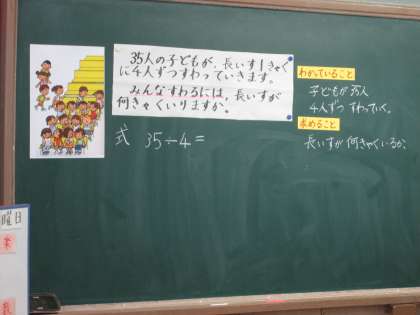 35人の子どもが、長いす1きゃく
に4人ずつすわっていきます。
みんなすわるには、長いすが
何きゃくいりますか。
式 35÷4=
わかっていること
子どもが35人
4人ずつ すわっていく。
求めること
長いすが何きゃくいるか。
曜日